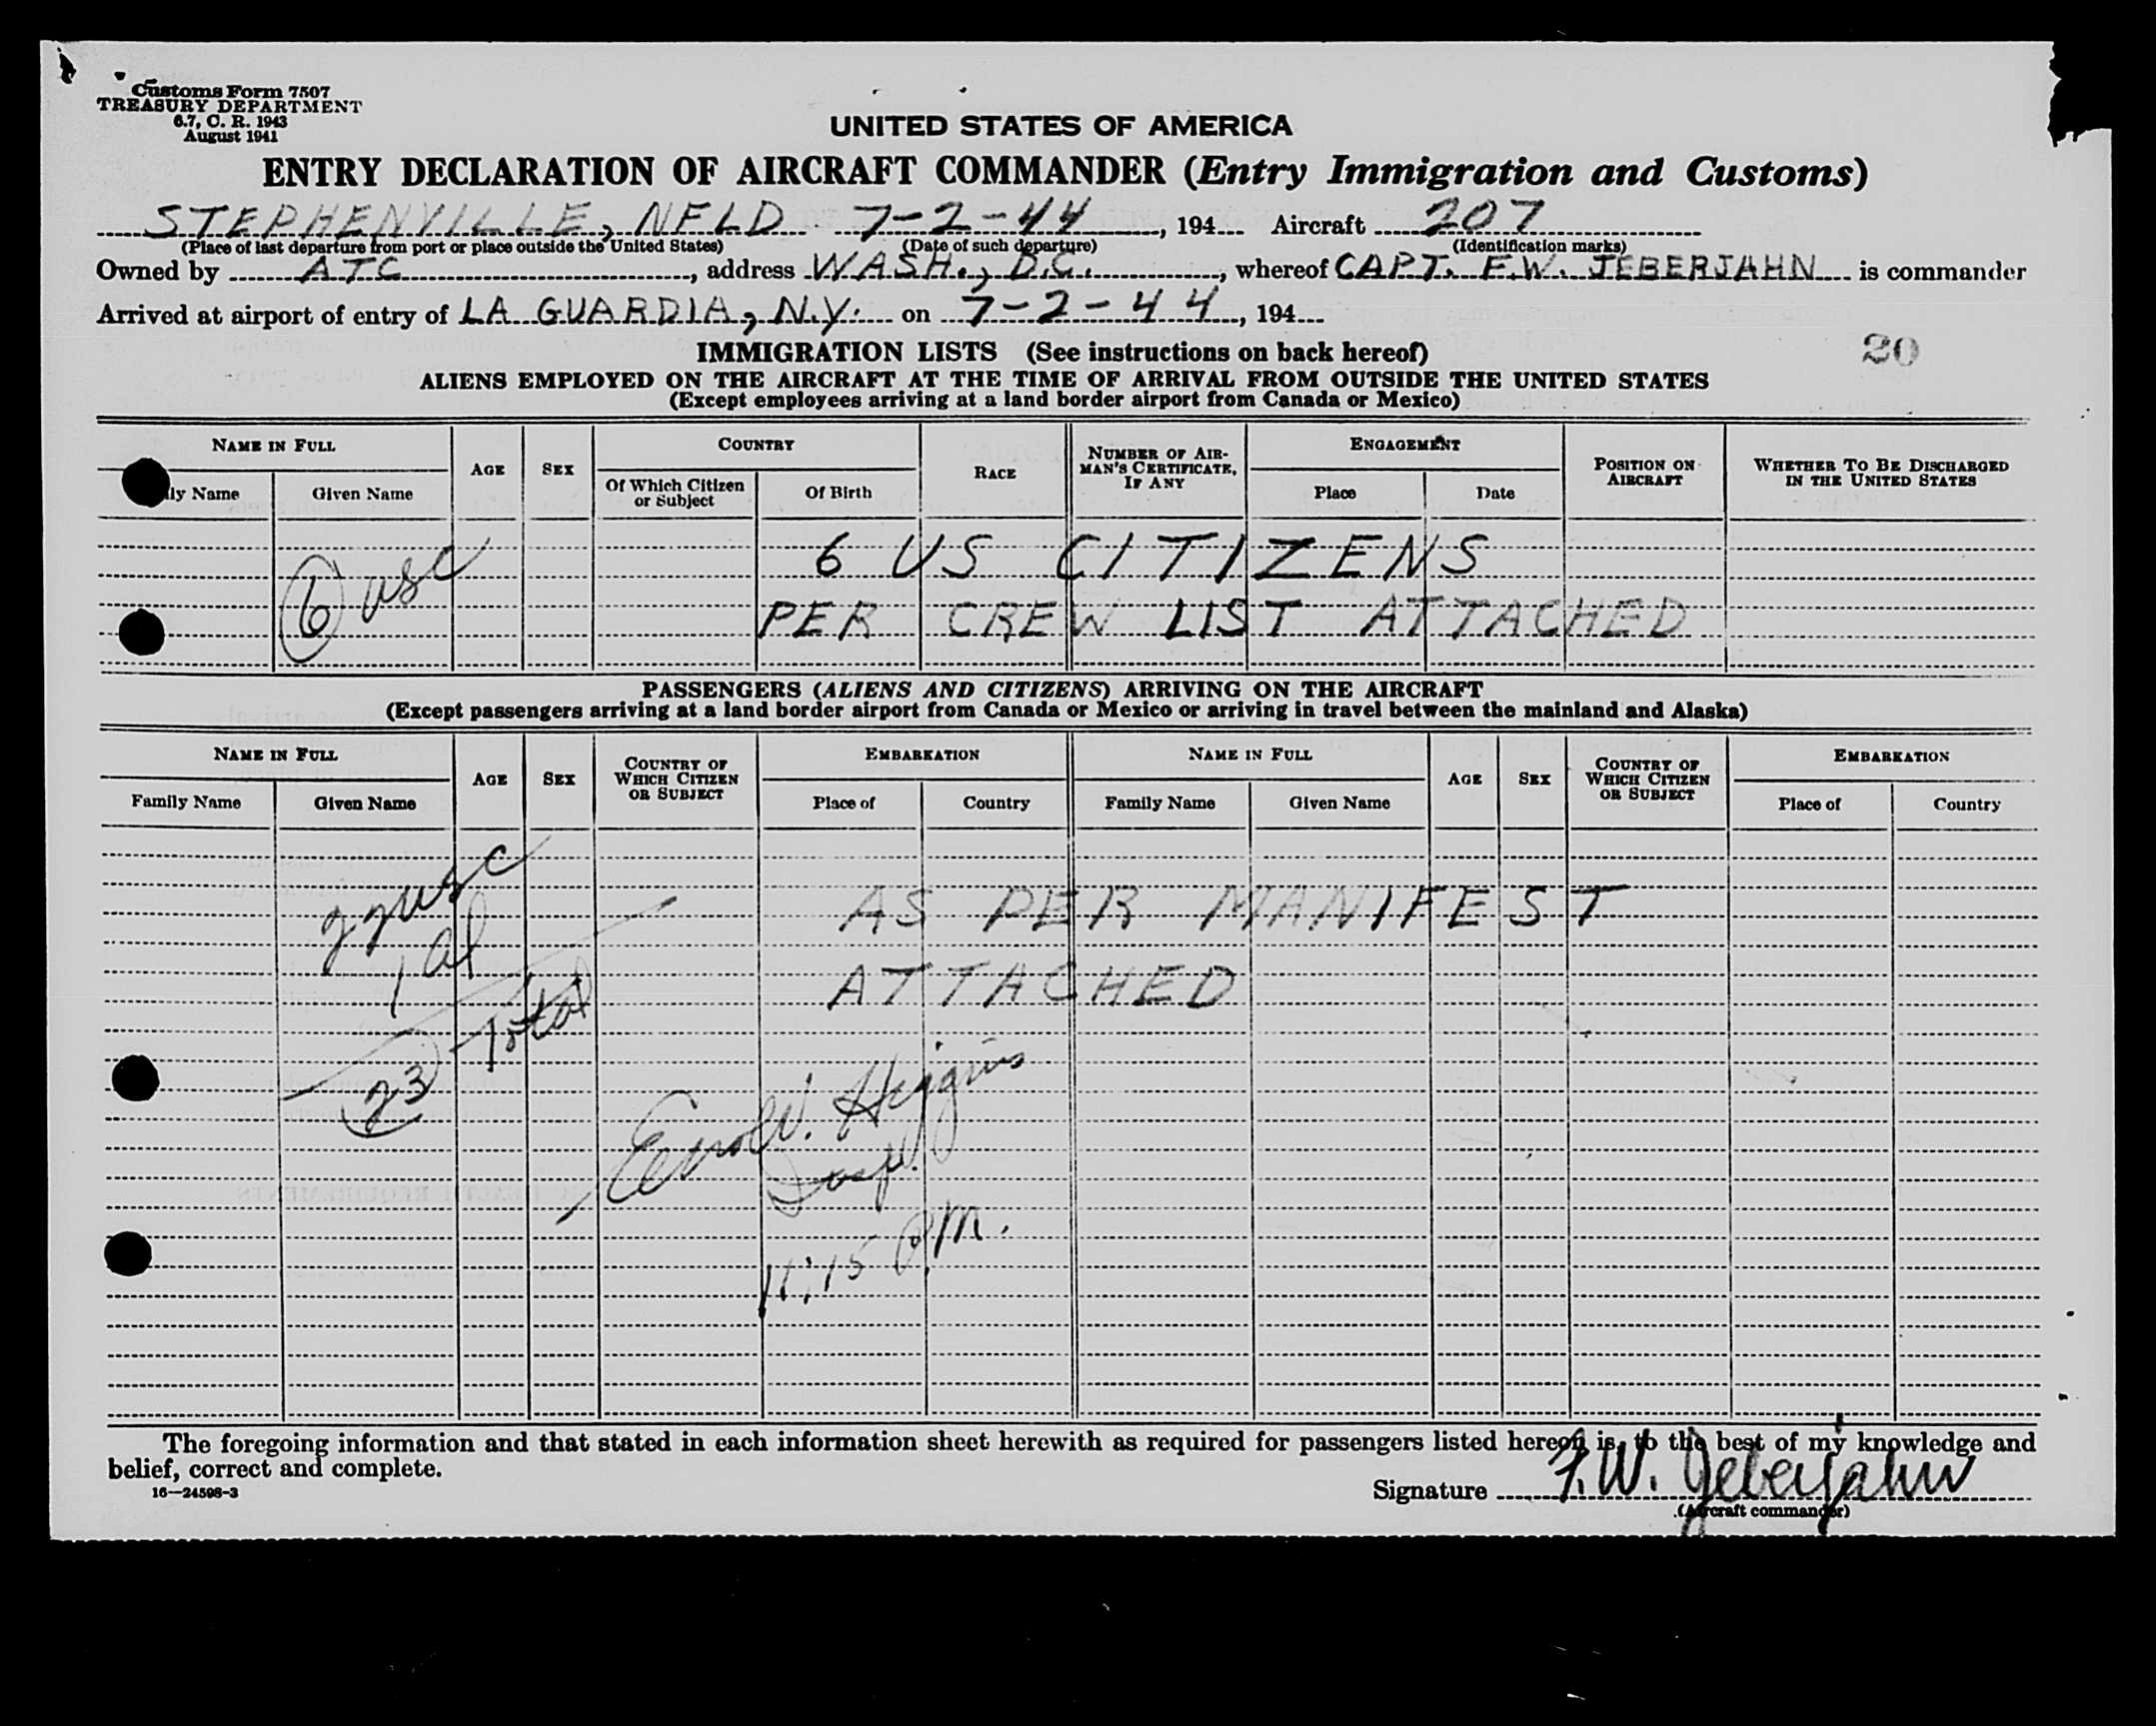 Customs Form 7507
TREASURY DEPARTMENT
6.7, C. R. 1943
August 1941
UNITED STATES OF AMERICA
ENTRY DECLARATION OF AIRCRAFT COMMANDER (Entry Immigration and Customs)
STEPHENVILLE, NFLD 7-2-44, 194 Aircraft 207
(Place of last departure from port or place outside the United States) (Date of such departure) (Identification marks)
Owned by ATC, address WASH., D.C., whereof CAPT. F.W. JEBERJAHN is commander
Arrived at airport of entry of LA GUARDIA, N.Y. on 7-2-44, 194
IMMIGRATION LISTS (See instructions on back hereof)
20
ALIENS EMPLOYED ON THE AIRCRAFT AT THE TIME OF ARRIVAL FROM OUTSIDE THE UNITED STATES
(Except employees arriving at a land border airport from Canada or Mexico)
NAME IN FULL AGE SEX COUNTRY RACE NUMBER OF AIRMAN'S CERTIFICATE, IF ANY ENGAGEMENT POSITION ON AIRCRAFT WHETHER TO BE DISCHARGED IN THE UNITED STATES
ly Name Given Name Of Which Citizen or Subject Of Birth Place Date
6 US CITIZENS
6 usc
PER CREW LIST ATTACHED
PASSENGERS (ALIENS AND CITIZENS) ARRIVING ON THE AIRCRAFT
(Except passengers arriving at a land border airport from Canada or Mexico or arriving in travel between the mainland and Alaska)
NAME IN FULL AGE SEX COUNTRY OF WHICH CITIZEN OR SUBJECT EMBARKATION NAME IN FULL AGE SEX COUNTRY OF WHICH CITIZEN OR SUBJECT EMBARKATION
Family Name Given Name Place of Country Family Name Given Name Place of Country
22 usc
AS PER MANIFEST
1 al
ATTACHED
Total
23
W. Higgins
Insp.
11:15 P.M.
The foregoing information and that stated in each information sheet herewith as required for passengers listed hereon is, to the best of my knowledge and
belief, correct and complete.
16—24598-3
Signature F.W. Jeberjahn
(Aircraft commander)